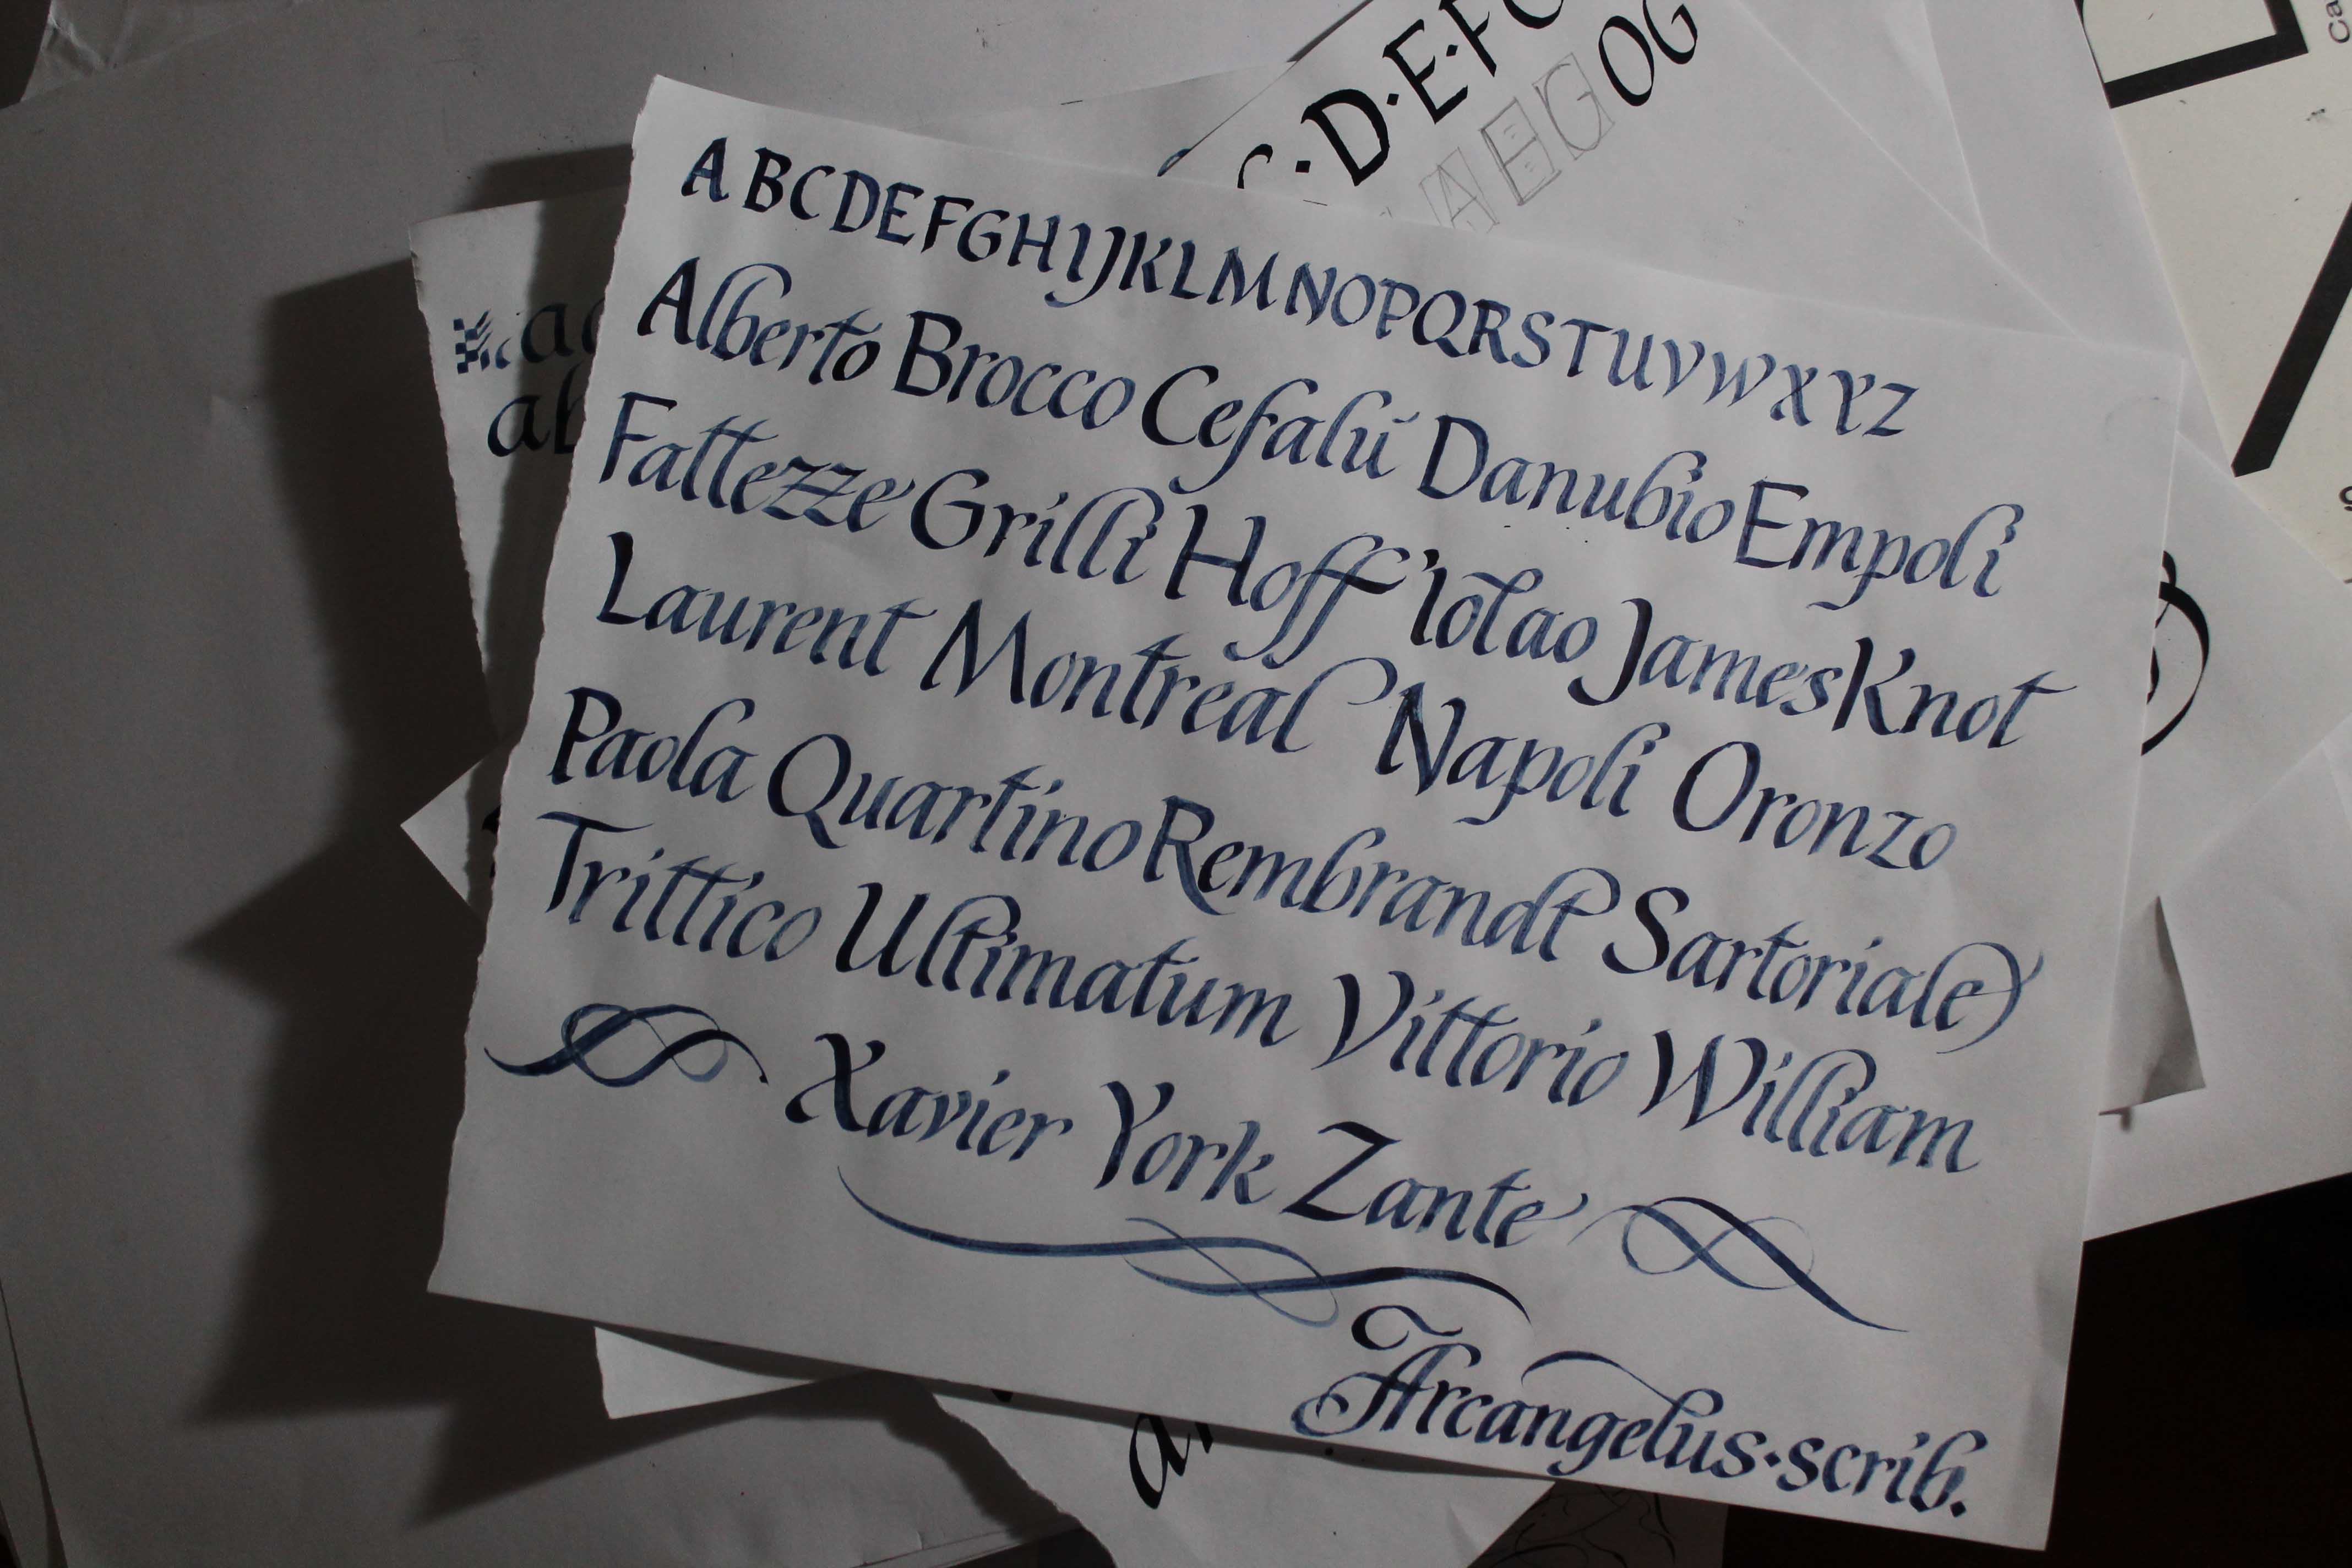 C·D·E·FG
AEGOG
A B C D E F G H I J K L M N O P Q R S T U V W X Y Z
Alberto Brocco Cefalù Danubio Empoli
Fattezze Grilli Hoff Iolao James Knot
Laurent Montreal Napoli Oronzo
Paola Quartino Rembrandt Sartoriale
Trittico Ultimatum Vittorio William
Xavier York Zante
Arcangelus·scrib.